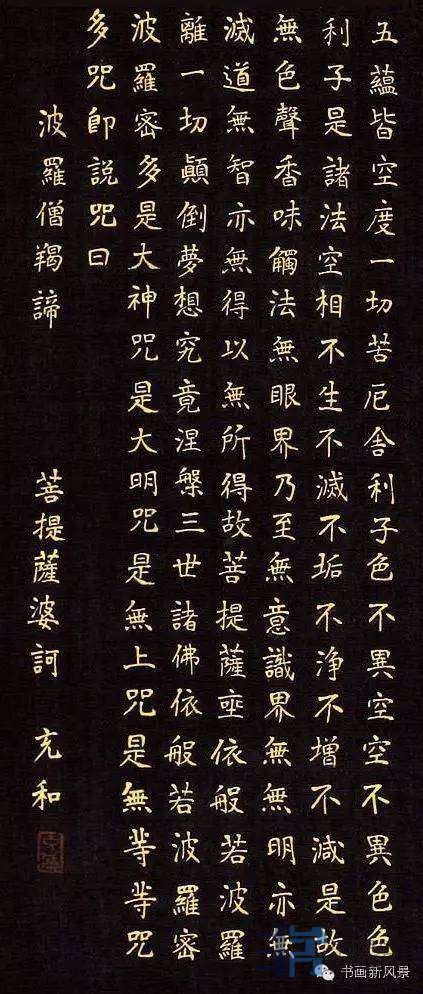 五蘊皆空度一切苦厄舍利子色不異空空不異色色
利子是諸法空相不生不滅不垢不浄不增不減是故
無色聲香味觸法無眼界乃至無意識界無無明亦無
滅道無智亦無得以無所得故菩提薩埵依般若波羅
離一切顛倒夢想究竟涅槃三世諸佛依般若波羅密
波羅密多是大神咒是大明咒是無上咒是無等等咒
多咒即說咒曰
波羅僧羯諦 菩提薩婆訶 充和
书画新风景